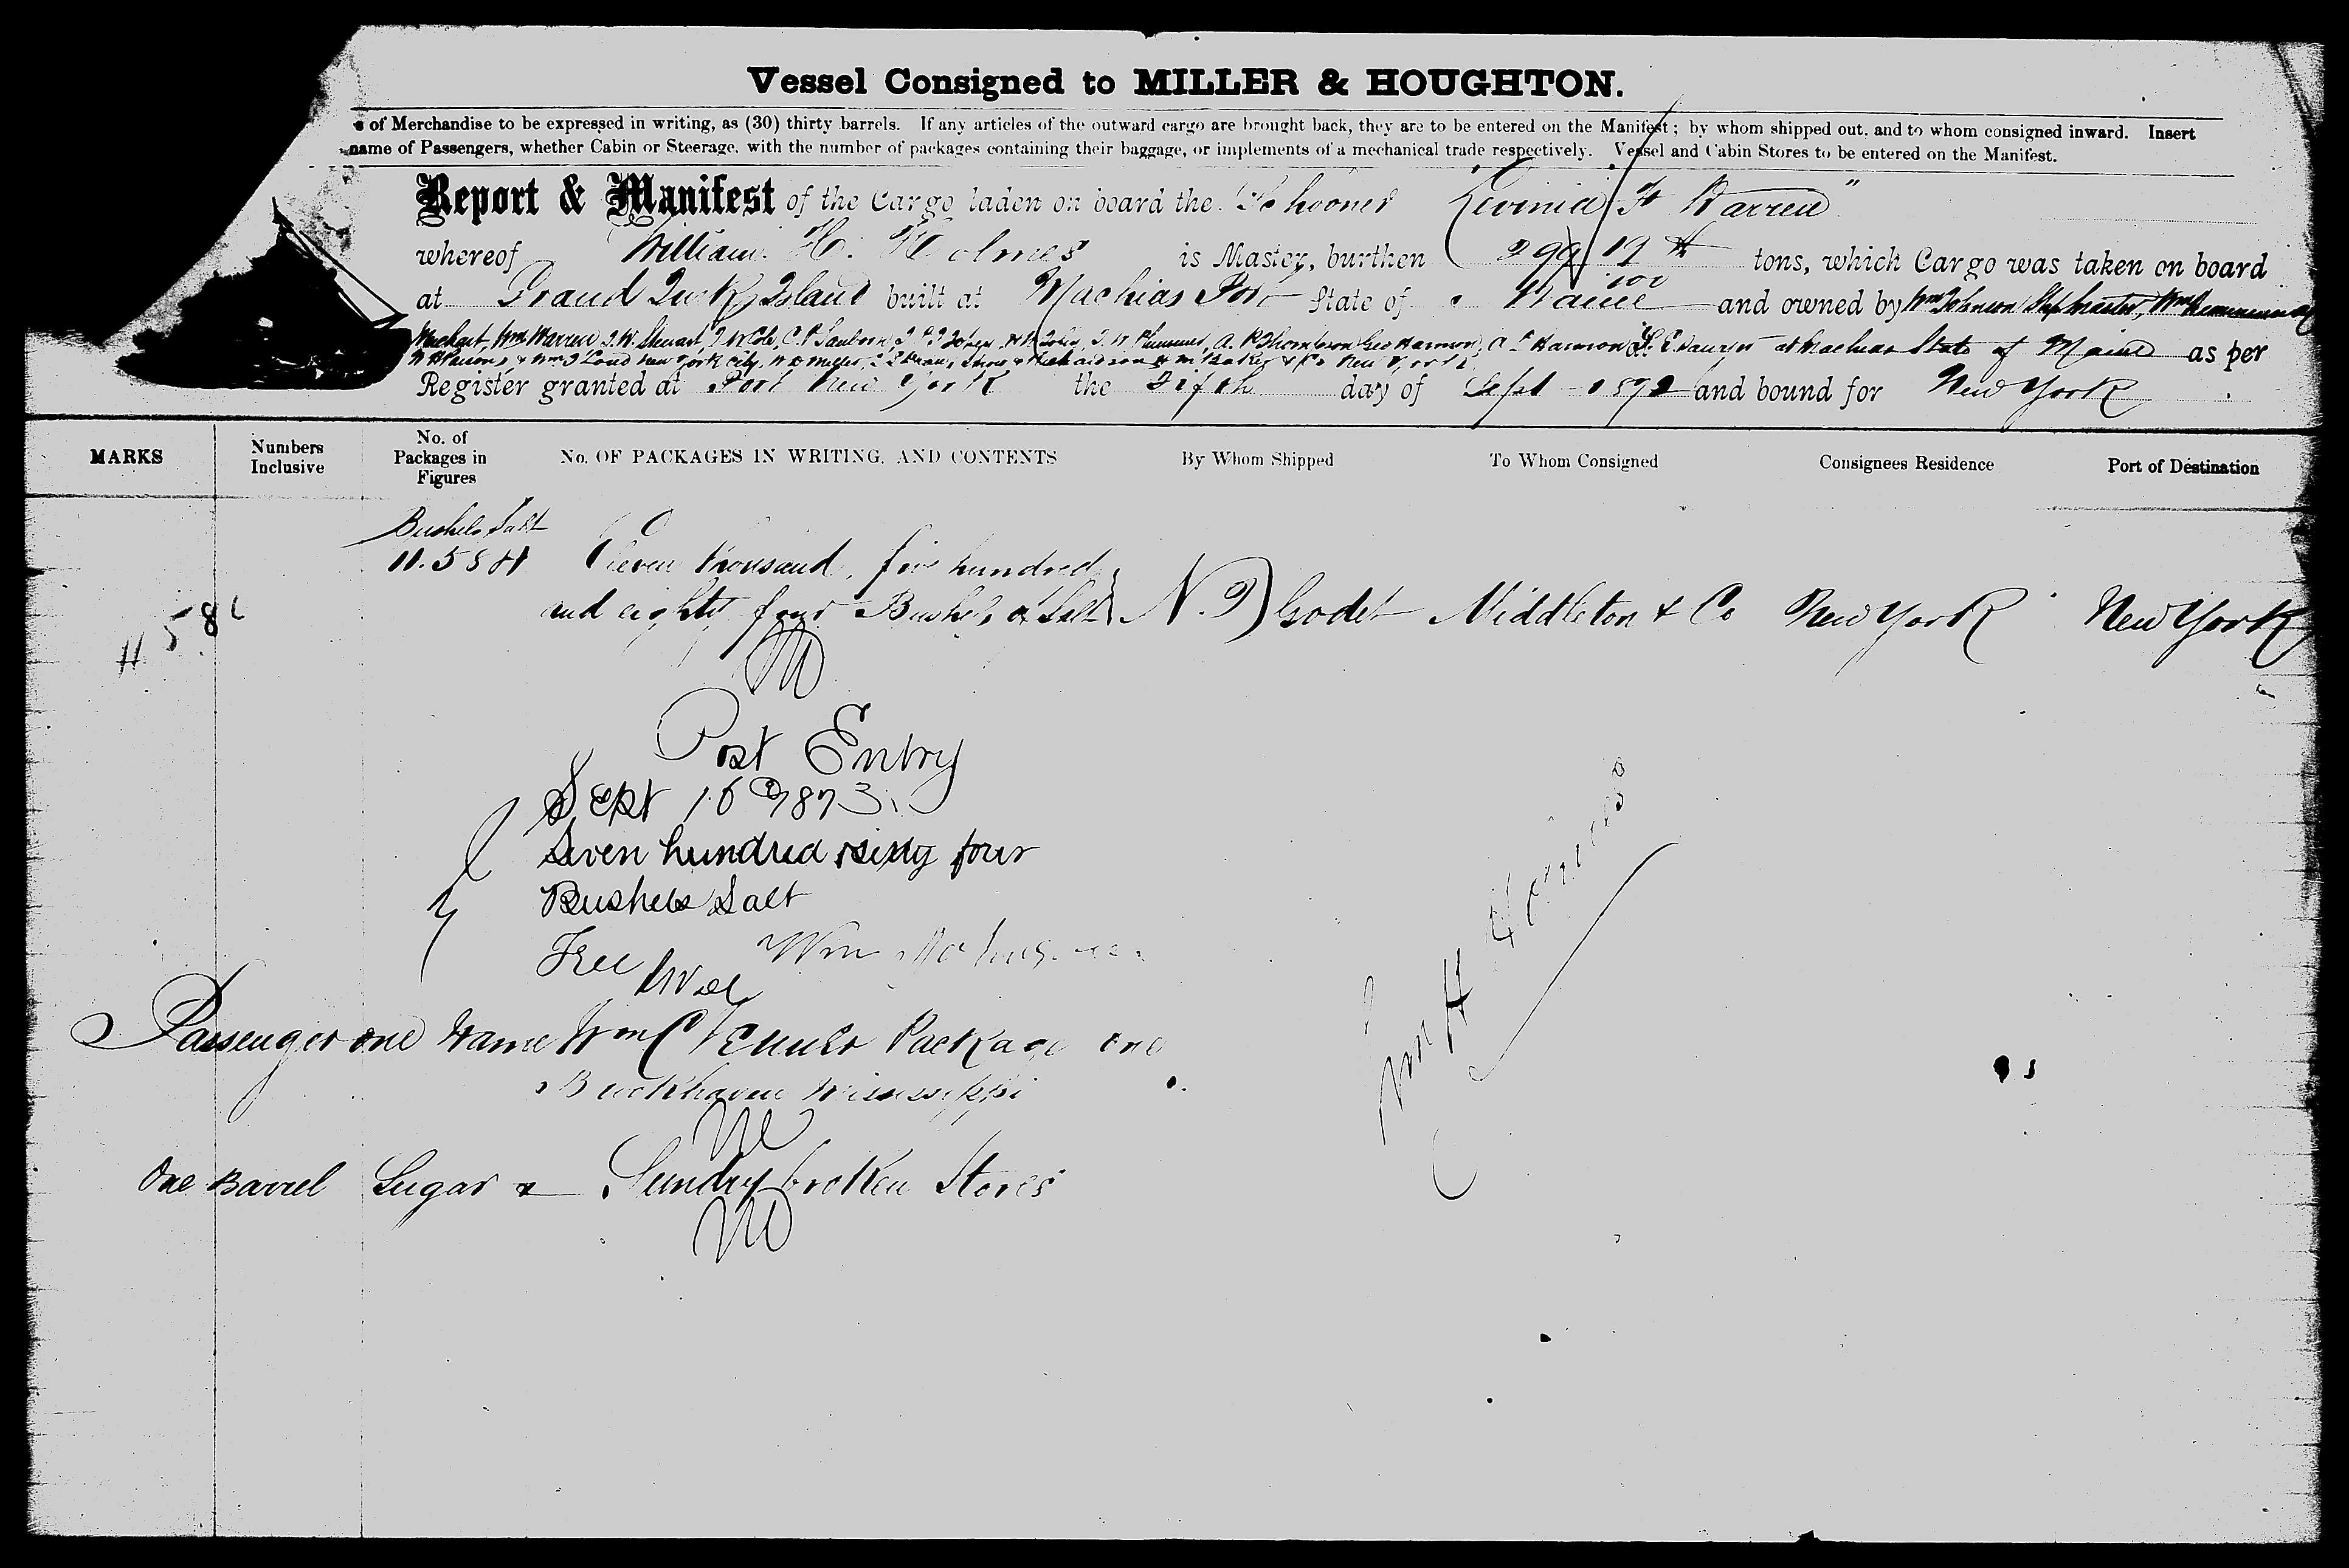 Vessel Consigned to MILLER & HOUGHTON.
s of Merchandise to be expressed in writing, as (30) thirty barrels. If any articles of the outward cargo are brought back, they are to be entered on the Manifest; by whom shipped out, and to whom consigned inward. Insert
name of Passengers, whether Cabin or Steerage, with the number of packages containing their baggage, or implements of a mechanical trade respectively. Vessel and Cabin Stores to be entered on the Manifest.
Report & Manifest of the Cargo laden on board the Schooner Levinia F Warren"
whereof William H. Holmes is Master, burthen 299 19/100 tons, which Cargo was taken on board
at Grand Turk Island built at Machias Port State of Maine and owned by Wm Johnson
Wm Warren J.W. Stewart A. P. Thompson Geo Harmon Harmon at Machias State of Maine as per
New York City New York
Register granted at Port New York the Fifth day of Sept 1872 and bound for New York
MARKS
Numbers Inclusive
No. of Packages in Figures
No. OF PACKAGES IN WRITING, AND CONTENTS
By Whom Shipped
To Whom Consigned
Consignees Residence
Port of Destination
Bushels Salt
11.584 Eleven thousand, five hundred
and eighty four Bushels of Salt Godet Middleton & Co New York New York
Post Entry
Sept 16 1873.
Seven hundred sixty four
Bushels Salt
Free
Passenger one Name Wm C Package one
Mississippi
One Barrel Sugar & Sundry broken Stores
Wm H Holmes